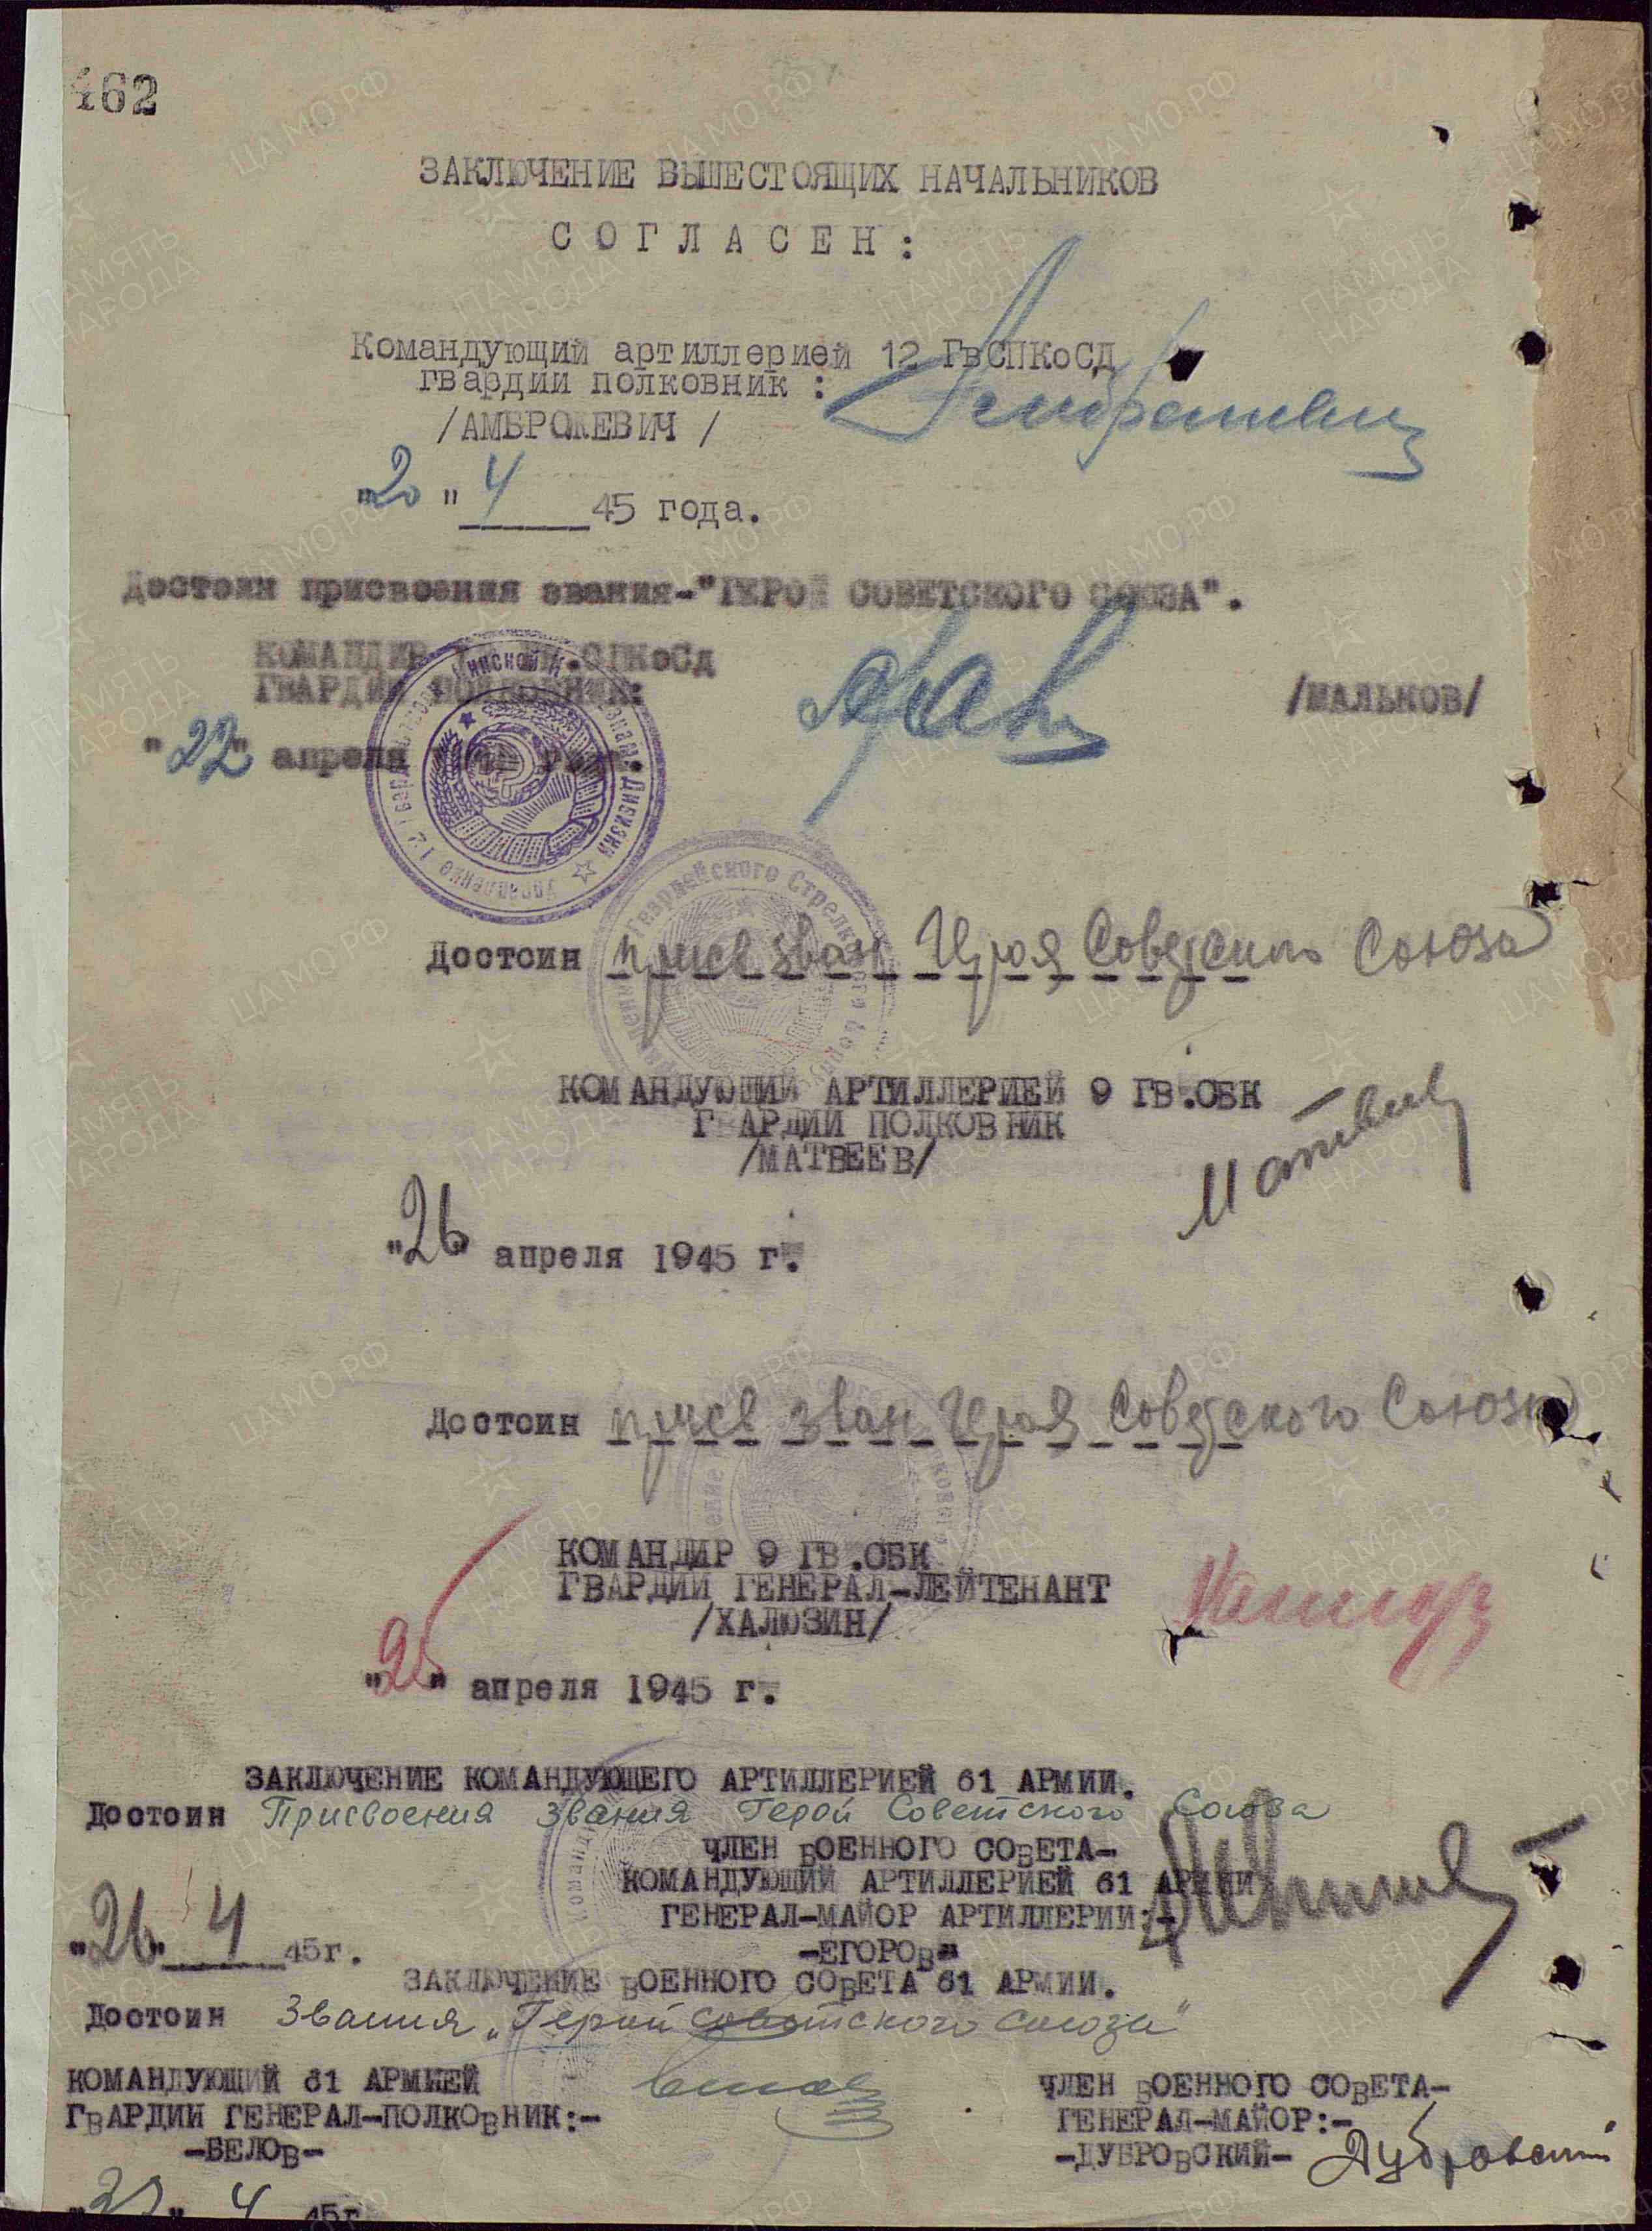 462
ЗАКЛЮЧЕНИЕ ВЫШЕСТОЯЩИХ НАЧАЛЬНИКОВ
СОГЛАСЕН:
Командующий артиллерией 12 ГвСПКоСД
гвардии полковник :
/АМБРОЖЕВИЧ /
"20 " 4 45 года.
Достоин присвоения звания-"ГЕРОЙ СОВЕТСКОГО СОЮЗА".
КОМАНДИР СПКоСд
ГВАРДИИ ПОЛКОВНИК:
/МАЛЬКОВ/
"22" апреля
Достоин присв зван Героя Советского Союза
КОМАНДУЮЩИЙ АРТИЛЛЕРИЕЙ 9 ГВ.СБК
ГВАРДИИ ПОЛКОВНИК
/МАТВЕЕВ/
Матвеев
"26" апреля 1945 г.
Достоин присв зван Героя Советского Союза
КОМАНДИР 9 ГВ.СБК
ГВАРДИИ ГЕНЕРАЛ-ЛЕЙТЕНАНТ
/ХАЛЮЗИН/
" " апреля 1945 г.
ЗАКЛЮЧЕНИЕ КОМАНДУЮЩЕГО АРТИЛЛЕРИЕЙ 61 АРМИИ.
Достоин Присвоения Звания Герой Советского Союза
ЧЛЕН ВОЕННОГО СОВЕТА-
КОМАНДУЮЩИЙ АРТИЛЛЕРИЕЙ 61 АРМИИ
ГЕНЕРАЛ-МАЙОР АРТИЛЛЕРИИ:-
-ЕГОРОВ-
"26" 4 45г.
ЗАКЛЮЧЕНИЕ ВОЕННОГО СОВЕТА 61 АРМИИ.
Достоин Звания „Герой Советского Союза"
КОМАНДУЮЩИЙ 61 АРМИЕЙ
ГВАРДИИ ГЕНЕРАЛ-ПОЛКОВНИК:-
-БЕЛОВ-
ЧЛЕН ВОЕННОГО СОВЕТА-
ГЕНЕРАЛ-МАЙОР:-
-ДУБРОВСКИЙ- Дубровский
" " 4 45г